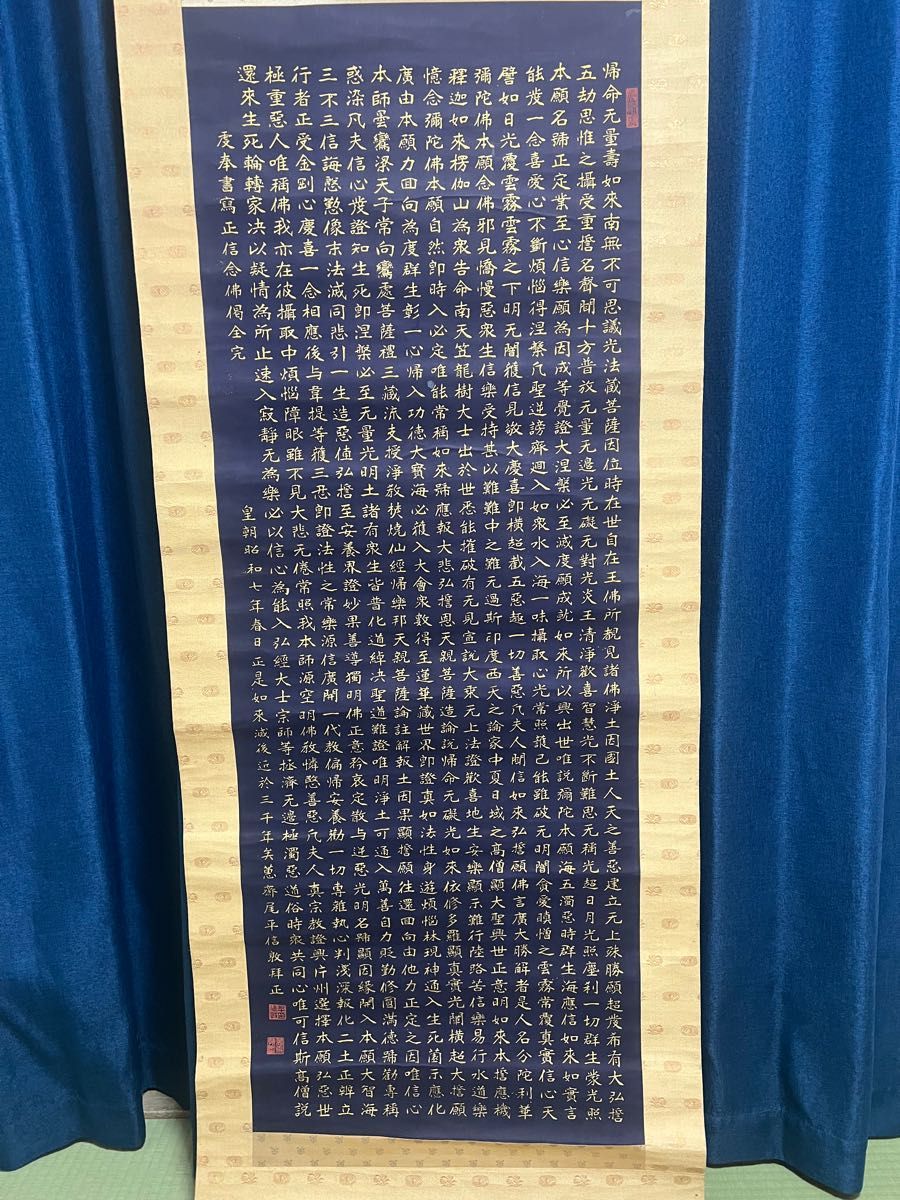 帰命无量壽如來南無不可思議光法藏菩薩因位時在世自在王佛所覩見諸佛淨土因國土人天之善惡建立无上殊勝願超發希有大弘誓
五劫思惟之攝受重誓名聲聞十方普放无量无邊光无礙无對光炎王清淨歡喜智慧光不斷難思无稱光超日月光照塵刹一切群生蒙光照
本願名號正定業至心信樂願為因成等覺證大涅槃必至滅度願成就如來所以興出世唯說彌陀本願海五濁惡時群生海應信如來如實言
能發一念喜愛心不斷煩惱得涅槃凡聖逆謗齊迴入如衆水入海一味攝取心光常照護已能雖破无明闇貪愛瞋憎之雲霧常覆真實信心天
譬如日光覆雲霧雲霧之下明无闇獲信見敬大慶喜即橫超截五惡趣一切善惡凡夫人聞信如來弘誓願佛言廣大勝解者是人名分陀利華
彌陀佛本願念佛邪見憍慢惡衆生信樂受持甚以難難中之難无過斯印度西天之論家中夏日域之高僧顯大聖興世正意明如來本誓應機
釋迦如來楞伽山為衆告命南天笠龍樹大士出於世悉能摧破有无見宣說大乘无上法證歡喜地生安樂顯示難行陸路苦信樂易行水道樂
憶念彌陀佛本願自然即時入必定唯能常稱如來號應報大悲弘誓恩天親菩薩造論說帰命无礙光如來依修多羅顯真實光闡橫超大誓願
廣由本願力回向為度群生彰一心帰入功德大寶海必獲入大會衆數得至蓮華藏世界即證真如法性身遊煩惱林現神通入生死薗示應化
本師曇鸞梁天子常向鸞處菩薩禮三藏流支授淨教焚燒仙經帰樂邦天親菩薩論註解報土因果顯誓願往還回向由他力正定之因唯信心
惑染凡夫信心發證知生死即涅槃必至无量光明土諸有衆生皆普化道綽決聖道難證唯明淨土可通入萬善自力貶勤修圓滿德號勸專稱
三不三信誨慇懃像末法滅同悲引一生造惡值弘誓至安養界證妙果善導獨明佛正意矜哀定散与逆惡光明名號顯因緣開入本願大智海
行者正受金剛心慶喜一念相應後与韋提等獲三忍即證法性之常樂源信廣開一代教偏帰安養勸一切專雜執心判淺深報化二土正辨立
極重惡人唯稱佛我亦在彼攝取中煩惱障眼雖不見大悲无倦常照我本師源空明佛教憐愍善惡凡夫人真宗教證興片州選擇本願弘惡世
還來生死輪轉家決以疑情為所止速入寂靜无為樂必以信心為能入弘經大士宗師等拯濟无邊極濁惡道俗時衆共同心唯可信斯高僧說
虔奉書寫正信念佛偈全完
皇朝昭和七年春日正是如來滅後近於三千年矣蕙齋尾平信敬拜正